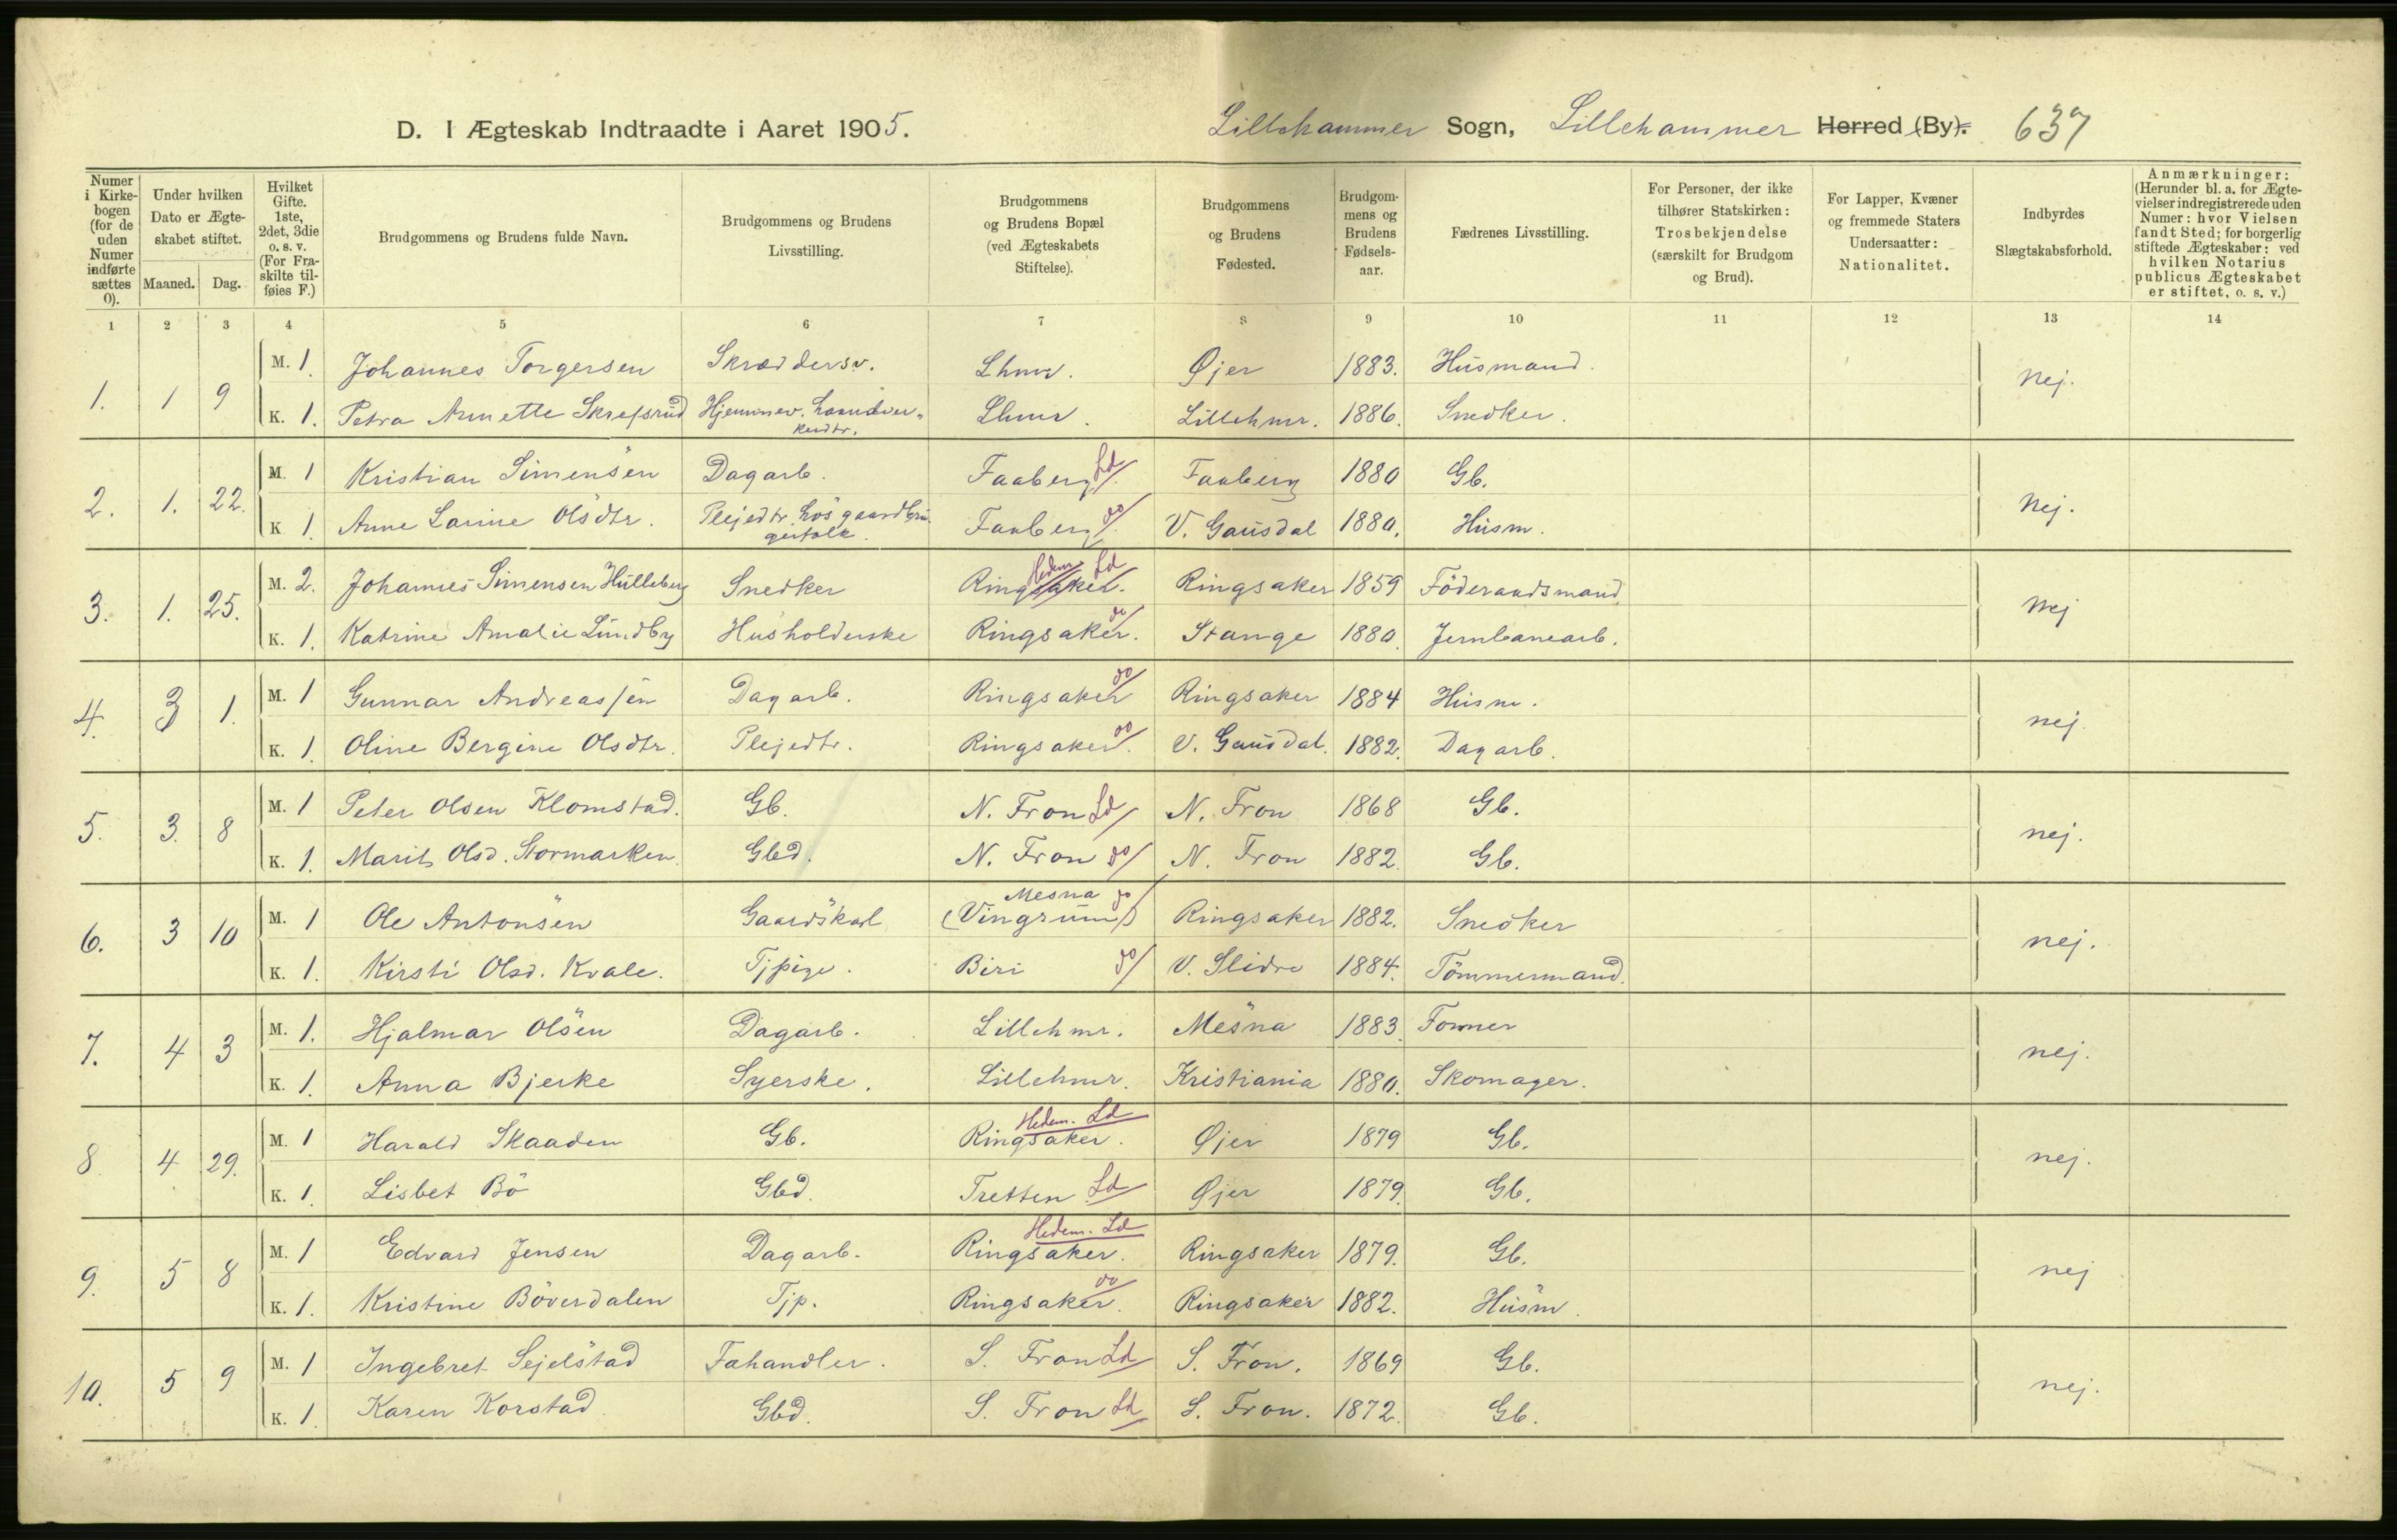 D. I Ægteskab Indtraadte i Aaret 1905. Lillehammer Sogn, Lillehammer Herred (By). 637
Numer i Kirkebogen (for de uden Numer indførte sættes 0).
Under hvilken Dato er Ægteskabet stiftet.
Maaned. Dag.
Hvilket Gifte. 1ste, 2det, 3die o. s. v. (For Fraskilte tilføies F.)
Brudgommens og Brudens fulde Navn.
Brudgommens og Brudens Livsstilling.
Brudgommens og Brudens Bopæl (ved Ægteskabets Stiftelse).
Brudgommens og Brudens Fødested.
Brudgommens og Brudens Fødselsaar.
Fædrenes Livsstilling.
For Personer, der ikke tilhører Statskirken: Trosbekjendelse (særskilt for Brudgom og Brud).
For Lapper, Kvæner og fremmede Staters Undersaatter: Nationalitet.
Indbyrdes Slægtskabsforhold.
Anmærkninger: (Herunder bl. a. for Ægtevielser indregistrerede uden Numer: hvor Vielsen fandt Sted; for borgerlig stiftede Ægteskaber: ved hvilken Notarius publicus Ægteskabet er stiftet, o. s. v.)
1 2 3 4 5 6 7 8 9 10 11 12 13 14
1. 1 9 M. 1. Johannes Torgersen Skræddersv. Lhmr. Øjer 1883. Husmand. nej.
K. 1. Petra Annette Skrefsrud Hjemmev. haandverkerdtr. Lhmr. Lillehmr. 1886. Snedker.
2. 1. 22. M. 1 Kristian Simensen Dagarb. Faaberg Ld Faaberg 1880 Gb. Nej.
K 1. Anne Larine Olsdtr. Plejedtr. hos gaardbrugerfolk. Faaberg do V. Gausdal 1880. Husm.
3. 1. 25. M. 2. Johannes Simensen Hulleberg Snedker Ringsaker. Hedem. Ld Ringsaker 1859 Föderaadsmand nej
K. 1. Katrine Amalie Lundby Husholderske Ringsaker. do Stange 1880. Jernbanearb.
4. 3 1. M. 1 Gunnar Andreassen Dagarb. Ringsaker do Ringsaker 1884 Husm. nej.
K. 1. Oline Bergine Olsdtr. Plejedtr. Ringsaker. do V. Gausdal. 1882. Dagarb.
5. 3. 8 M. 1 Peter Olsen Klomstad. Gb. N. Fron Ld N. Fron 1868 Gb. nej.
K. 1. Marit Olsd. Stormarken. Gbd. N. Fron do N. Fron 1882. Gb.
6. 3 10 M. 1 Ole Antonsen Gaardskarl Mesna (Vingrum) do Ringsaker 1882. Snedker nej.
K. 1. Kirsti Olsd. Kvale. Tjpige. Biri do V. Slidre 1884. Tömmermand.
7. 4 3 M. 1. Hjalmar Olsen Dagarb. Lillehmr. Mesna 1883. Former nej.
K. 1. Anna Bjerke Syerske. Lillehmr. Kristiania 1880. Skomager.
8. 4 29. M. 1 Harald Skaaden Gb. Ringsaker. Hedem. Ld Øjer 1879 Gb. nej.
K. 1. Lisbet Bö Gbd. Tretten Ld Øjer 1879. Gb.
9. 5 8 M. 1 Edvard Jensen Dagarb. Ringsaker. Hedem. Ld Ringsaker 1879. Gb. nej
K. 1. Kristine Böverdalen Tjp. Ringsaker. do Ringsaker 1882. Husm.
10. 5 9 M. 1 Ingebret Sejelstad Fahandler. S. Fron Ld S. Fron. 1869 Gb. nej.
K. 1. Karen Korstad Gbd. S. Fron Ld S. Fron. 1872. Gb.